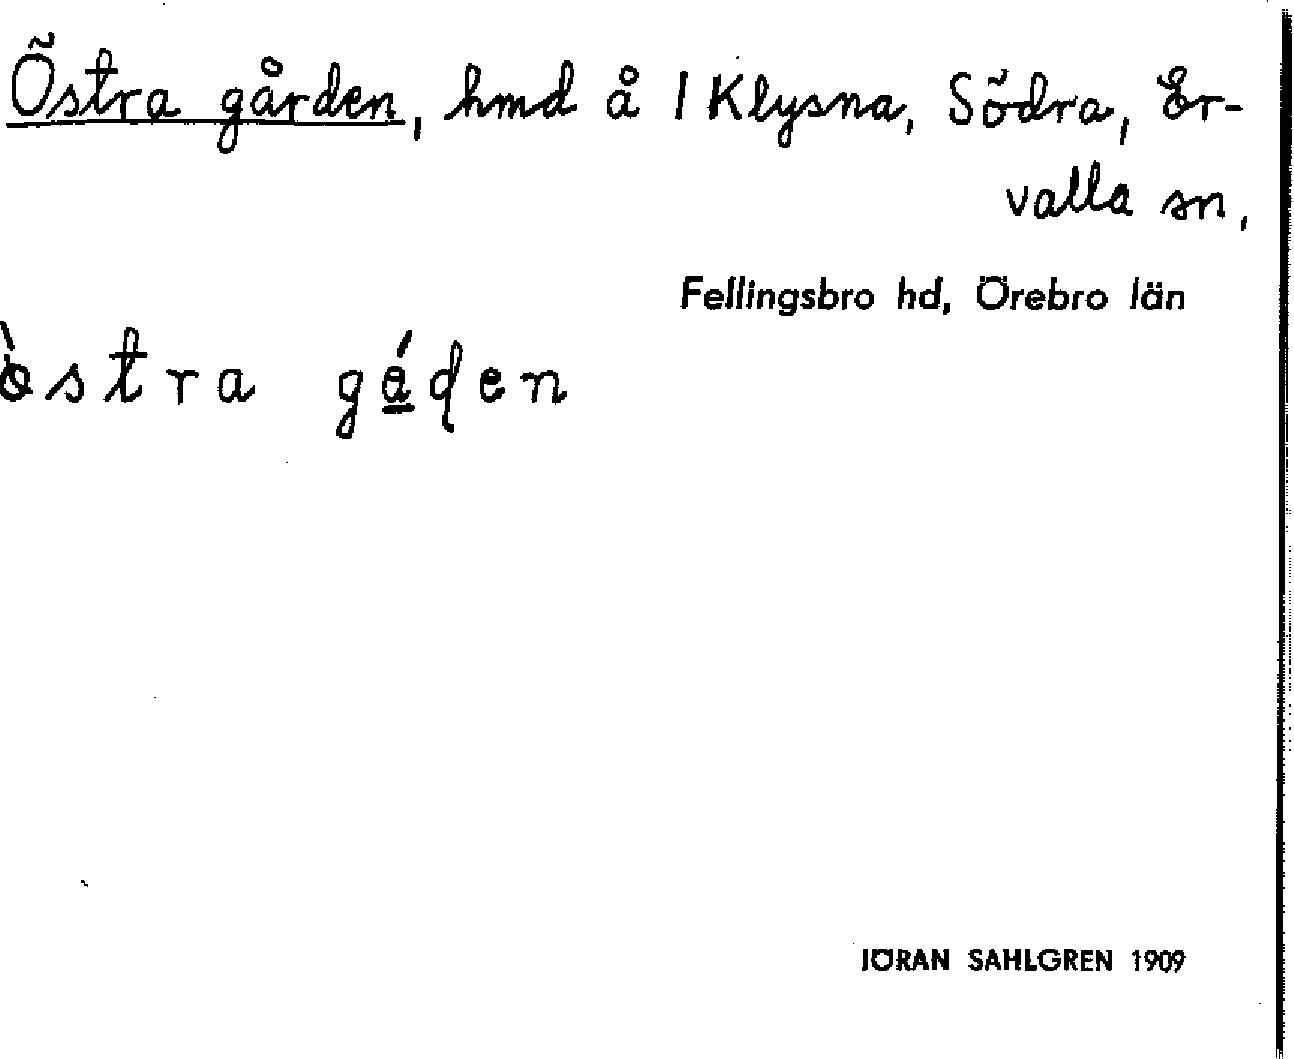 Östra gården, hmd å 1 Klysna, Södra, Er-
valla sn,
Fellingsbro hd, Örebro län
östra gáden
JÖRAN SAHLGREN 1909